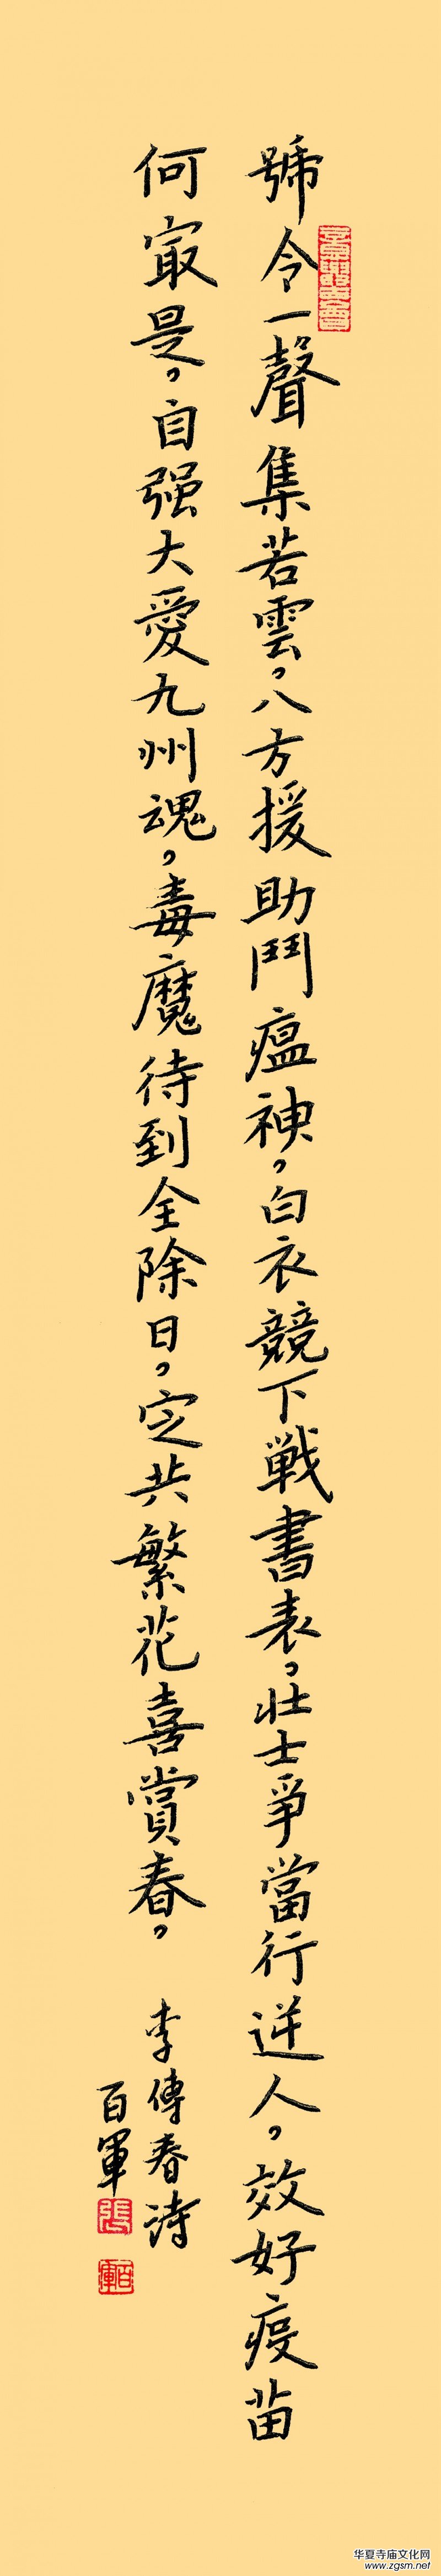 號令一聲集若雲，八方援助鬥瘟神，白衣競下戦書表，壮士爭當行逆人，效好疫苗
何寂是，自强大愛九州魂，毒魔待到全除日，定共繁花喜賞春，
李傳春詩
百軍
張
百軍
华夏寺庙文化网
www.zgsm.net